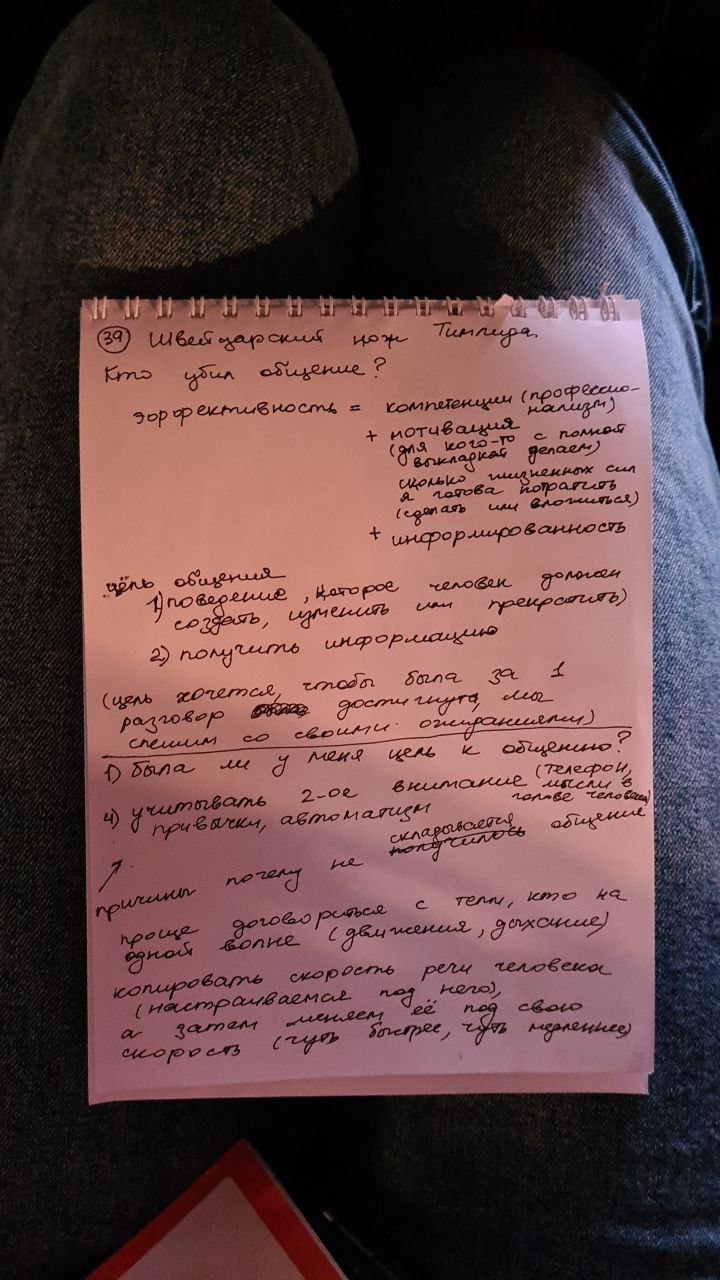 39 Швейцарский нож Тимлида.
Кто убил общение?
эффективность = компетенции (профессио-
нализм)
+ мотивация
(для кого-то с полной
выкладкой делаем)
сколько жизненных сил
я готова потратить
(сделать или вложиться)
+ информированность
цель общения
1) поведение, которое человек должен
создать, изменить или прекратить)
2) получить информацию
(цель хочется, чтобы была за 1
разговор достигнута, мы
спешим со своими ожиданиями)
1) была ли у меня цель к общению?
4) учитывать 2-ое внимание (телефон,
мысли в
голове человека)
привычки, автоматизм
↗ складывается
причины почему не получилось общение
проще договориться с теми, кто на
одной волне (движения, дыхание)
копировать скорость речи человека
(настраиваемся под него),
а затем меняем её под свою
скорость (чуть быстрее, чуть медленнее)